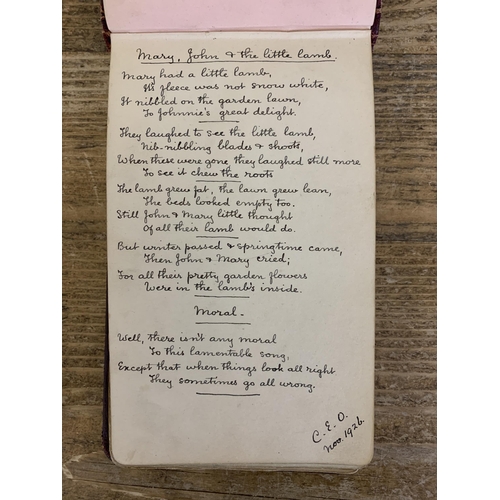 Mary, John & the little lamb.
Mary had a little lamb,
Its fleece was not snow white,
It nibbled on the garden lawn,
To Johnnie's great delight.
They laughed to see the little lamb,
Nib-nibbling blades & shoots,
When these were gone they laughed still more
To see it chew the roots
The lamb grew fat, the lawn grew lean,
The beds looked empty too.
Still John & Mary little thought
Of all their lamb would do.
But winter passed & springtime came,
Then John & Mary cried;
For all their pretty garden flowers
Were in the lamb's inside.
Moral.
Well, there isn't any moral
To this lamentable song,
Except that when things look all right
They sometimes go all wrong.
C. E. O.
Nov. 1926.